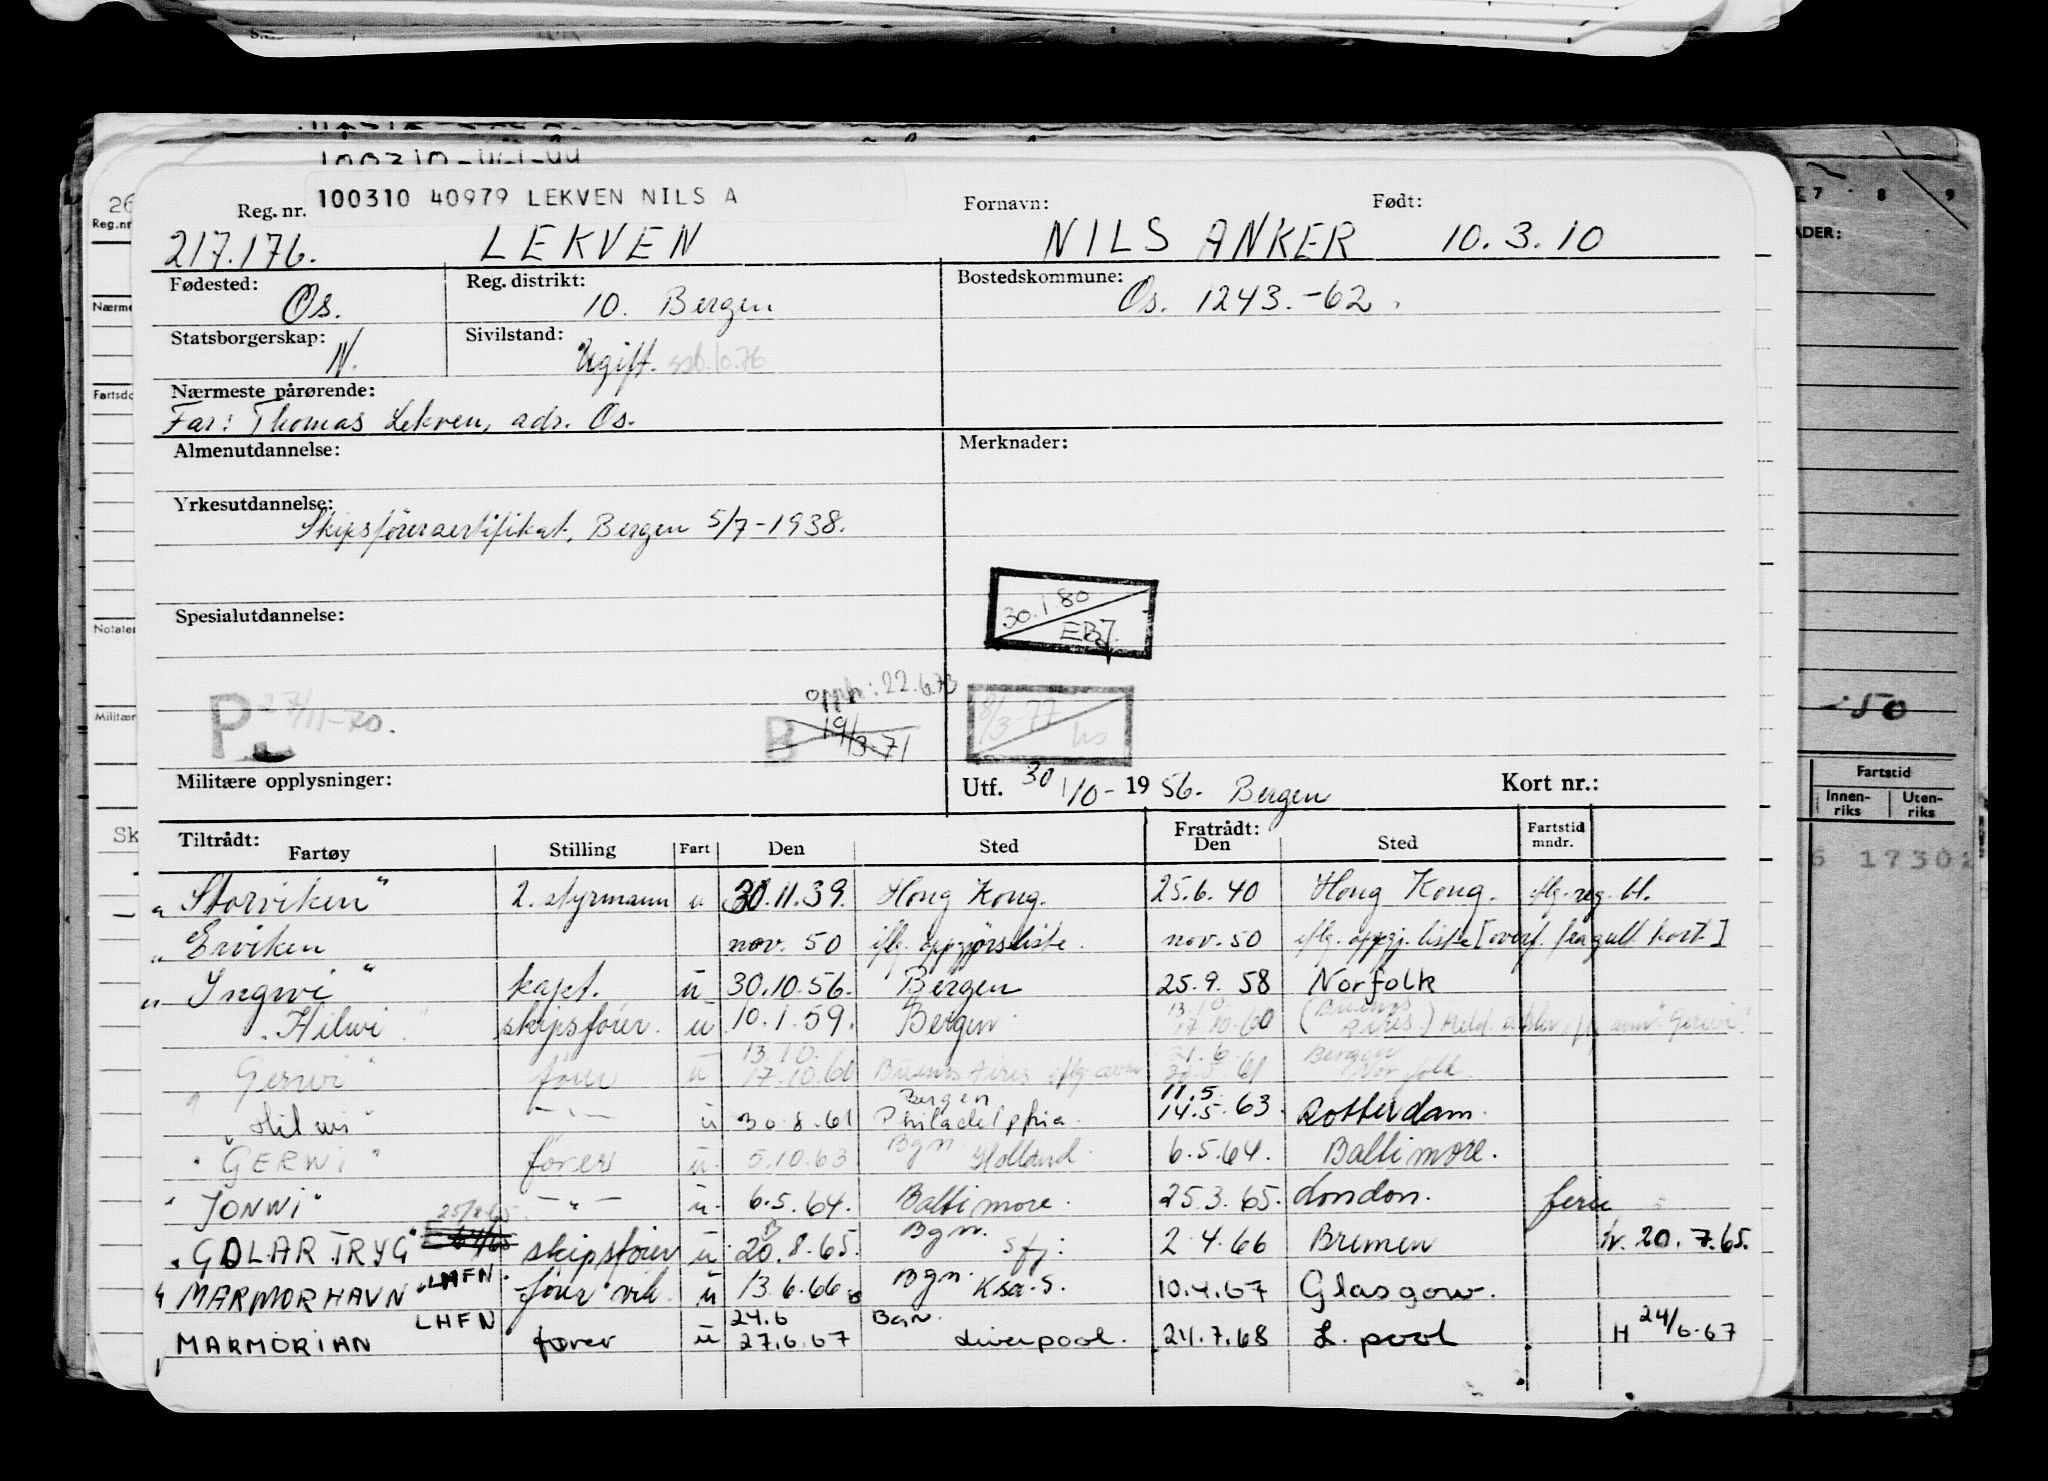 100310 40979 LEKVEN NILS A
Reg. nr. Fornavn: Født:
217.176. LEKVEN NILS ANKER 10.3.10
Fødested: Os. Reg. distrikt: 10. Bergen Bostedskommune: Os. 1243.-62.
Statsborgerskap: N. Sivilstand: Ugift. ssb.10.76
Nærmeste pårørende:
Far: Thomas Lekven, adr. Os.
Almenutdannelse: Merknader:
Yrkesutdannelse:
Skipsförersertifikat, Bergen 5/7-1938.
30.1.80
Spesialutdannelse:
P 27/11-70. B 19/3-71 opph: 22.6.73 8/3-77
Militære opplysninger: Utf. 30/10-1956. Bergen Kort nr.:
Tiltrådt: Fartøy Stilling Fart Den Sted Fratrådt: Den Sted Fartstid mndr.
"Storviken" 2. styrmann u 30.11.39. Hong Kong. 25.6.40 Hong Kong. iflg. reg. bl.
"Erviken nov. 50 iflg. oppgjørsliste. nov. 50 iflg. oppgj. liste [overf. fra gult kort]
"Ingwi" kapt. u 30.10.56. Bergen 25.9.58 Norfolk
"Hilwi skipsfører. u 10.1.59. Bergen 13.10. 17.10.60 (Buenos Aires)
"Gerwi" fører u 13.10. 17.10.60 Buenos Aires 21.6. 61 Bergen Norfolk.
"Hilwi" -"- u 30.8.61 Bergen. Philadelphia. 11.5. 14.5.63. Rotterdam.
"GERWI" fører u. 5.10.63 Bgn. Holland. 6.5.64. Baltimore.
"JONWI" -"- u. 6.5.64. Baltimore. 25.3.65. London. ferie
"GOLAR TRYG" 25/8-65 skipsfører u. 20.8.65. Bgn. 2.4.66 Bremen 20.7.65.
"MARMORHAVN" LHFN. fører vik u 13.6.66 Bgn. 10.4.67 Glasgow.
"MARMORIAN LHFN fører u 24.6 27.6.67 Bgn. Liverpool. 24.7.68 L. pool H 24/6-67
26
Reg.nr
Nærme
Fartsdo
Notater
Militær
Sk
7 8 9
ADER:
50
Fartstid
Innen-riks Uten-riks
17302